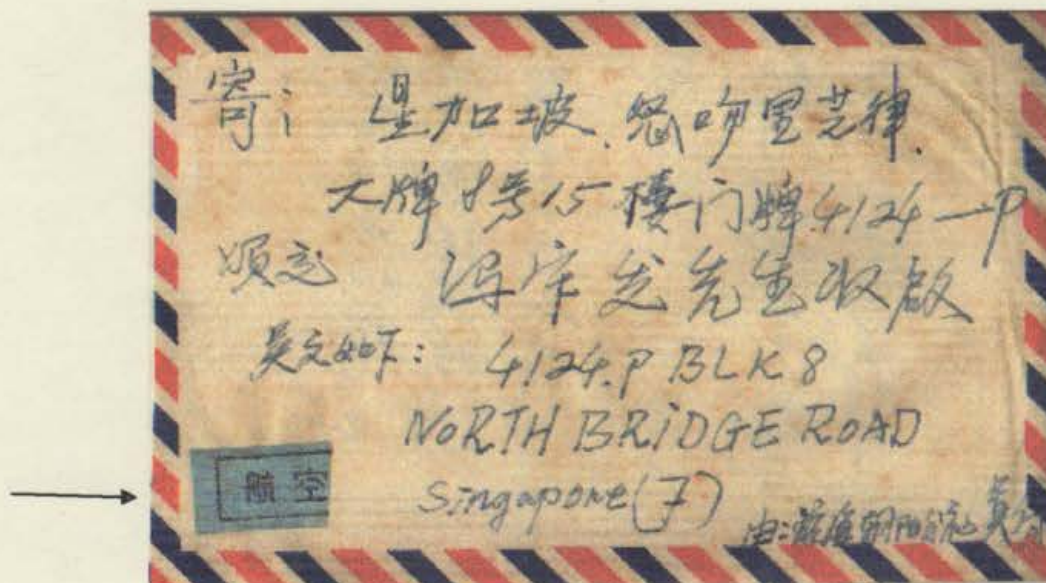 寄: 星加坡.怒吻里芝律.
大牌8号15楼门牌4124—P
顺交 冯宗发先生收启
英文如下: 4124.P BLK 8
NORTH BRiDGE ROAD
航空
Singapore (7)
由: 朝阳 黄